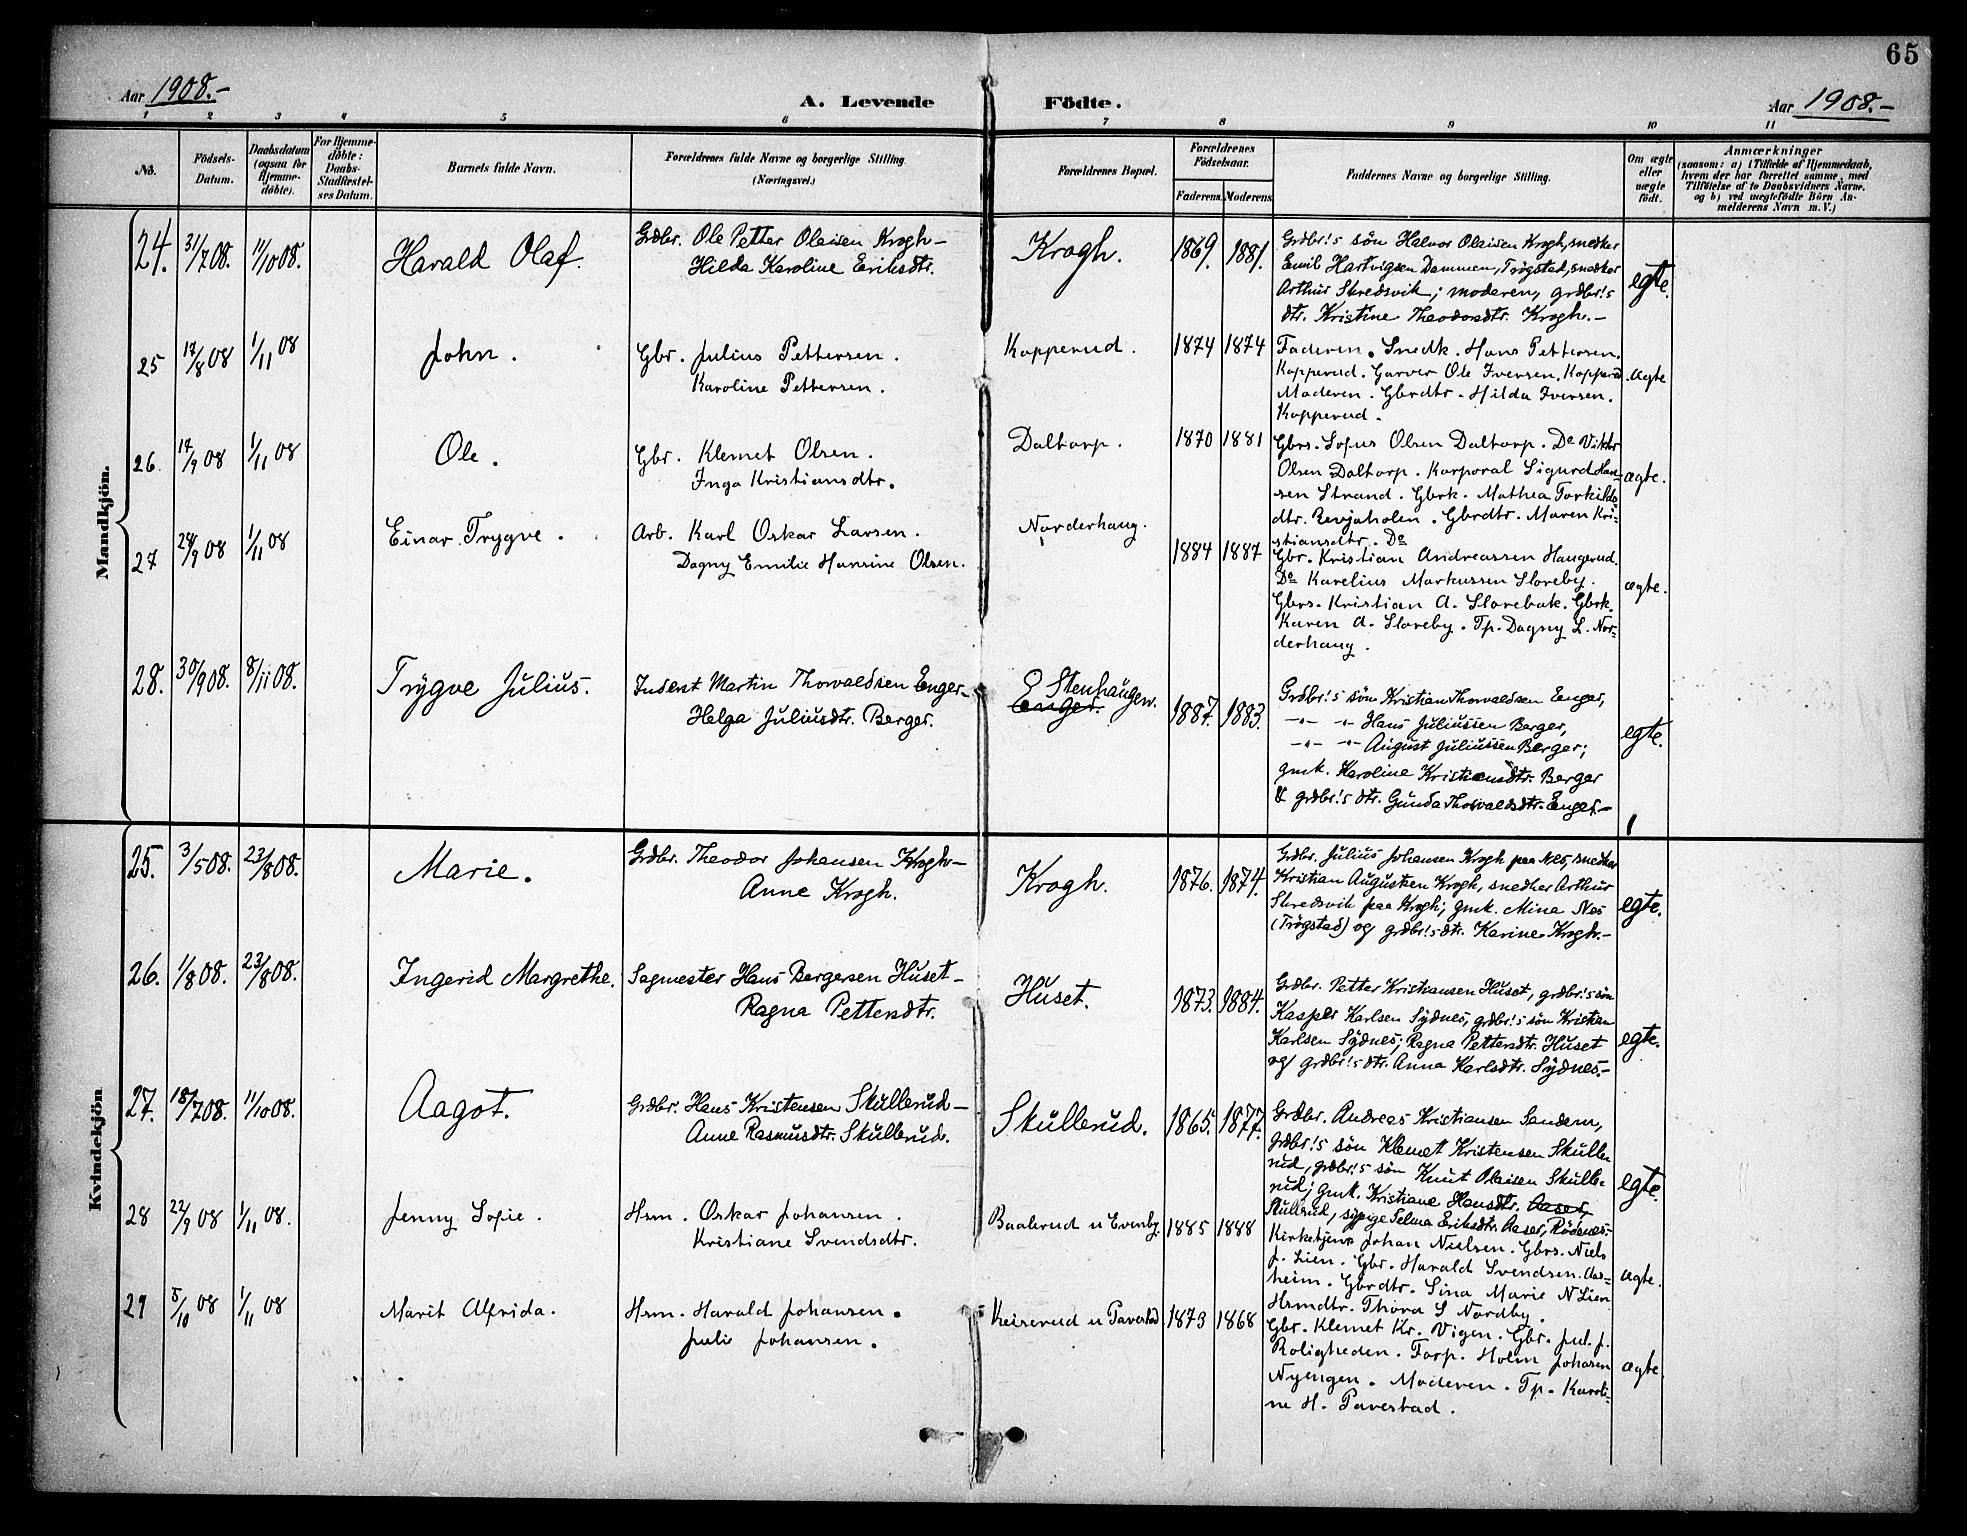 65
Aar 1908.-
A. Levende Födte.
Aar 1908.-
1 2 3 4 5 6 7 8 9 10 11
No.
Födsels-
Datum.
Daabsdatum
(ogsaa for
Hjemme-
döbte).
For Hjemme-
døbte:
Daabs-
Stadfæstel-
ses Datum.
Barnets fulde Navn.
Forældrenes fulde Navne og borgerlige Stilling
(Næringsvei.)
Forældrenes Bopæl.
Forældrenes
Födselsaar.
Faderens. Moderens.
Faddernes Navne og borgerlige Stilling.
Om ægte
eller
uægte
födt.
Anmærkninger
(saasom: a) i Tilfælde af Hjemmedaab,
hvem der har forrettet samme, med
Tilföielse af to Daabsvidners Navne.
og b) ved uægtefödte Börn An-
melderens Navn m.V.)
Mandkjön.
24. 31/7 08. 11/10 08. Harald Olaf.
Grdbr. Ole Petter Olaisen Krogh-
Hilda Karoline Eriksdtr.
Krogh. 1869. 1881.
Grdbr!s sön Halvor Olaisen Krogh, snedker
Emil Hartvigsen Dammen, Trögstad, snedker
Arthur Skredsvik; moderen, grdbr!s
dtr. Kristine Theodorsdtr. Krogh.-
egte.
25 17/8 08 1/11 08 John.
Gbr. Julius Pettersen.
Karoline Pettersen.
Kopperud. 1874 1874
Faderen. Snedk. Hans Pettersen.
Kopperud. Garver Ole Iversen. Kopperud
Moderen. Gbrdtr. Hilda Iversen.
Kopperud.
ægte
26. 17/9 08 1/11 08 Ole.
Gbr. Klemet Olsen.
Inga Kristiansdtr.
Daltorp. 1870 1881
Gbrs. Sofus Olsen Daltorp. Do Viktor
Olsen Daltorp. Korporal Sigurd Han-
sen Strand. Gbrk. Mathea Torkilds-
dtr. Revjaholen. Gbrdtr. Maren Kri-
stiansdtr. Do
ægte.
27 24/9 08 1/11 08 Einar Trygve.
Arb. Karl Oskar Larsen.
Dagny Emilie Hansine Olsen.
Norderhaug. 1884 1887
Gbr. Kristian Andreassen Haugerud.
Do Karelius Markussen Sloreby.
Gbrs. Kristian A. Slorebak. Gbrk.
Karen A. Sloreby. Tp. Dagny L. Nor-
derhaug.
ægte.
28. 30/9 08. 8/11 08. Trygve Julius.
Inderst Martin Thorvaldsen Enger-
Helga Juliusdtr. Berger.
Stenhaugen.
Enger. 1887. 1883.
Grdbr!s sön Kristian Thorvaldsen Enger,
-"- -"- Hans Juliussen Berger,
-"- -"- August Juliussen Berger;
gmk. Karoline Kristiansdtr. Berger
& grdbr!s dtr. Gunda Thorvaldsdtr. Enger.-
egte.
Kvindekjön
25. 3/5 08. 23/8 08. Marie.
Grdbr. Theodor Johansen Krogh-
Anne Krogh.
Krogh. 1876. 1874.
Grdbr. Julius Johansen Krogh paa Nes, snedker
Kristian Augustsen Krogh, snedker Arthur
Skredsvik paa Krogh; gmk. Mina Nes
(Trögstad) og grdbr!s dtr. Karine Krogh.-
egte.
26. 1/8 08. 23/8 08. Ingerid Margrethe.
Sagmester Hans Bergersen Huset-
Ragna Pettersdtr.
Huset. 1873. 1884.
Grdbr. Petter Kristiansen Huset, grdbr!s sön
Kasper Karlsen Sydnes, grdbr!s sön Kristian
Karlsen Sydnes; Ragna Pettersdtr. Huset
og grdbr!s dtr. Anna Karlsdtr. Sydnes.-
egte.
27. 18/7 08. 11/10 08. Aagot.
Grdbr. Hans Kristensen Skullerud-
Anne Rasmusdtr. Skullerud.
Skullerud. 1865. 1877.
Grdbr. Andreas Kristiansen Sandem,
grdbr!s sön Klemet Kristensen Skulle-
rud, grdbr!s sön Knut Olaisen Skulle-
rud; gmk. Kristiane Hansdtr. Aaser,
Skullrud, sypige Selma Eriksdtr. Aaser, Rödenes.-
egte.
28 22/9 08 1/11 08. Jenny Sofie.
Hrm. Oskar Johansen.
Kristiane Svendsdtr.
Baaserud u Evenby. 1885 1888
Kirketjener Johan Nielsen. Gbrs. Niels
J. Lien. Gbr. Harald Svendsen. Aas-
heim. Gbrdtr. Sina Marie N Lien
Hrmdtr. Thora S Nordby.
ægte.
29 5/10 08 1/11 08 Marit Alfrida.
Hrm. Harald Johansen.
Julie Johansen.
Keiserud u Taverstad 1873 1868
Gbr. Klemet Kr. Vigen. Gbr. Jul. J.
Roligheden. Forp. Holm Johasen
Nyengen. Moderen. Tp. Karoli-
ne H. Taverstad.
ægte